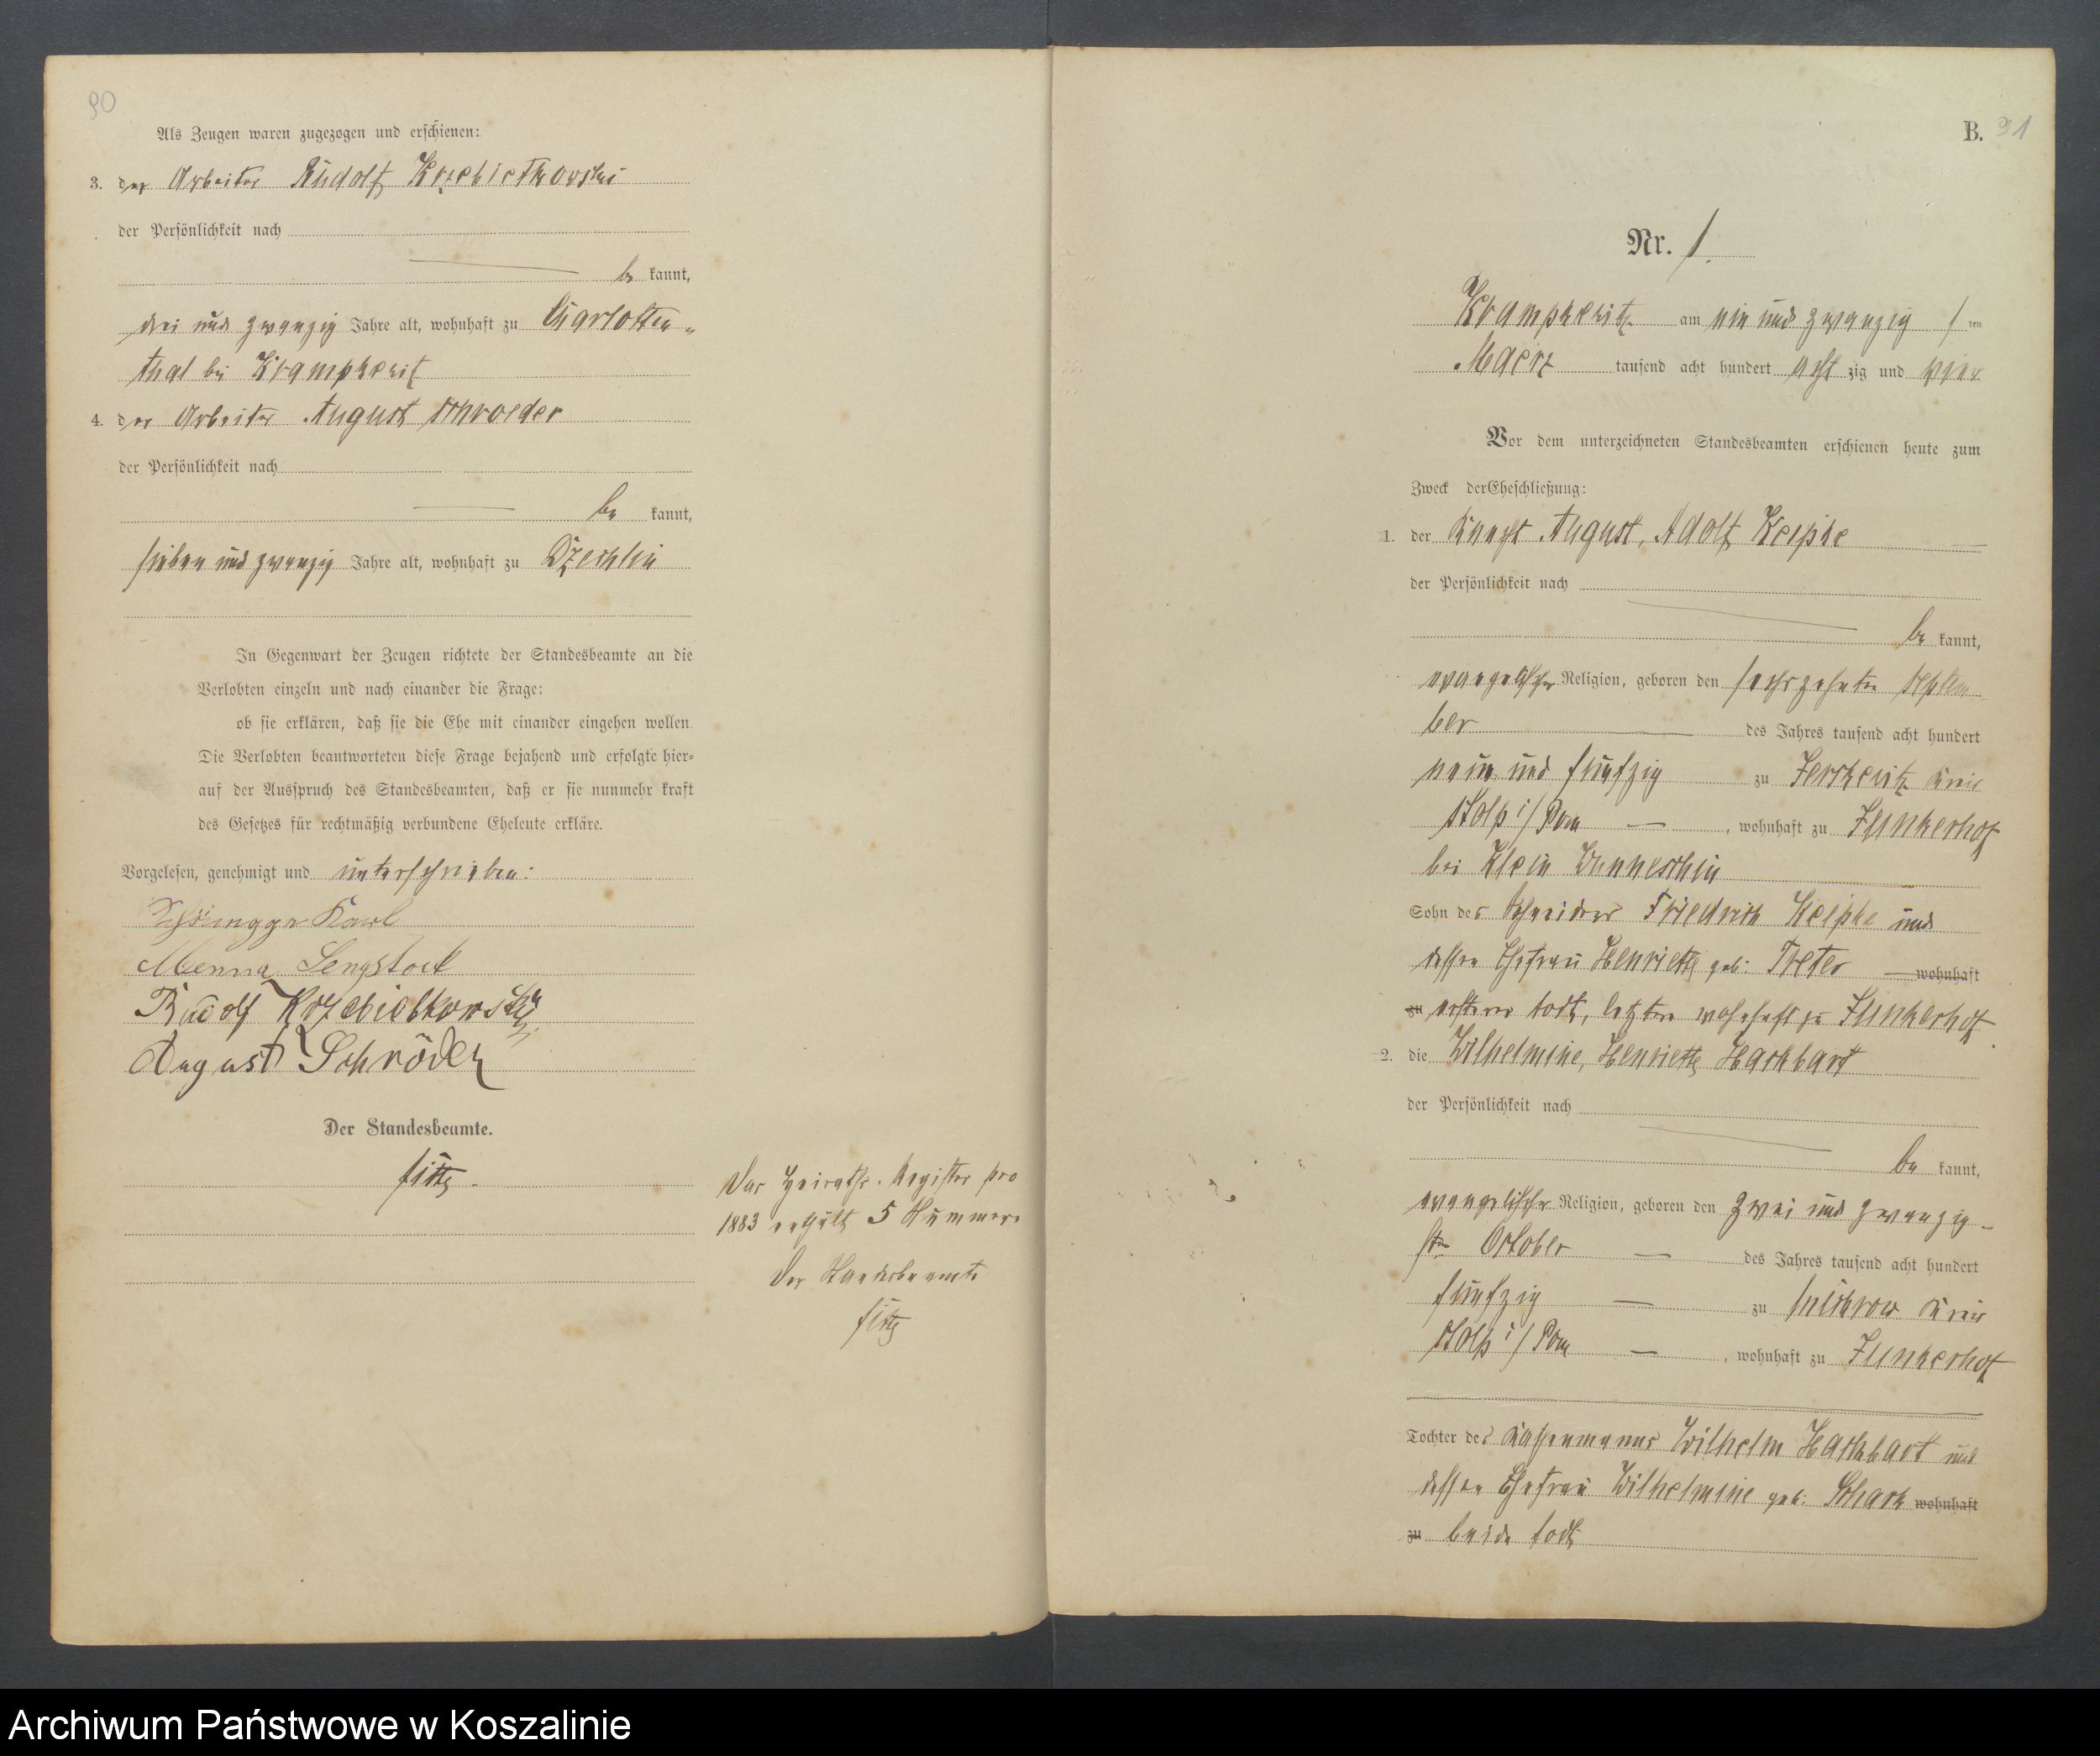 90
Als Zeugen waren zugezogen und erschienen:
3. der Arbeiter Rudolf Krzebietkowski
der Persönlichkeit nach
be kannt,
drei und zwanzig Jahre alt, wohnhaft zu Charlotten-
thal bei Krampkewitz
4. der Arbeiter August Schroeder
der Persönlichkeit nach
be kannt,
sieben und zwanzig Jahre alt, wohnhaft zu Dzechlin
In Gegenwart der Zeugen richtete der Standesbeamte an die
Verlobten einzeln und nach einander die Frage:
ob sie erklären, daß sie die Ehe mit einander eingehen wollen
Die Verlobten beantworteten diese Frage bejahend und erfolgte hier-
auf der Ausspruch des Standesbeamten, daß er sie nunmehr kraft
des Gesetzes für rechtmäßig verbundene Eheleute erkläre.
Vorgelesen, genehmigt und unterschrieben:
Karl
Menna Sengstock
Rudolf Krzebietkowski
August Schröder
Der Standesbeamte.
Das Heiraths-Register pro
1883 enthält 5 Nummern
Der Standesbeamte
B. 91
Nr. 1.
Krampkewitz am ein und zwanzig ten
Maerz tausend acht hundert acht zig und vier
Vor dem unterzeichneten Standesbeamten erschienen heute zum
Zweck der Eheschließung:
1. der Knecht August, Adolf Keipke
der Persönlichkeit nach
be kannt,
evangelischer Religion, geboren den sechszehnten Septem
ber des Jahres tausend acht hundert
neun und fünfzig zu Jerskewitz Kreis
Stolp i/Pom , wohnhaft zu Junkerhof
bei Klein Wunneschin
Sohn des Schneiders Friedrich Keipke und
dessen Ehefrau Henriette geb: Treter wohnhaft
zu ersterer todt, letztere wohnhaft zu Junkerhof
2. die Wilhelmine, Henriette Hackbart
der Persönlichkeit nach
be kannt,
evangelischer Religion, geboren den zwei und zwanzig-
sten October des Jahres tausend acht hundert
fünfzig zu Kreis
Stolp i/Pom , wohnhaft zu Junkerhof
Tochter des Wilhelm Hackbart und
dessen Ehefrau Wilhelmine geb: Schack wohnhaft
zu beide todt
Archiwum Państwowe w Koszalinie